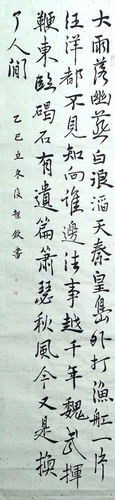 大雨落幽燕白浪滔天秦皇島外打漁船一片
汪洋都不見知向誰邊往事越千年魏武揮
鞭東臨碣石有遺篇蕭瑟秋風今又是換
了人間
乙巳立冬後書